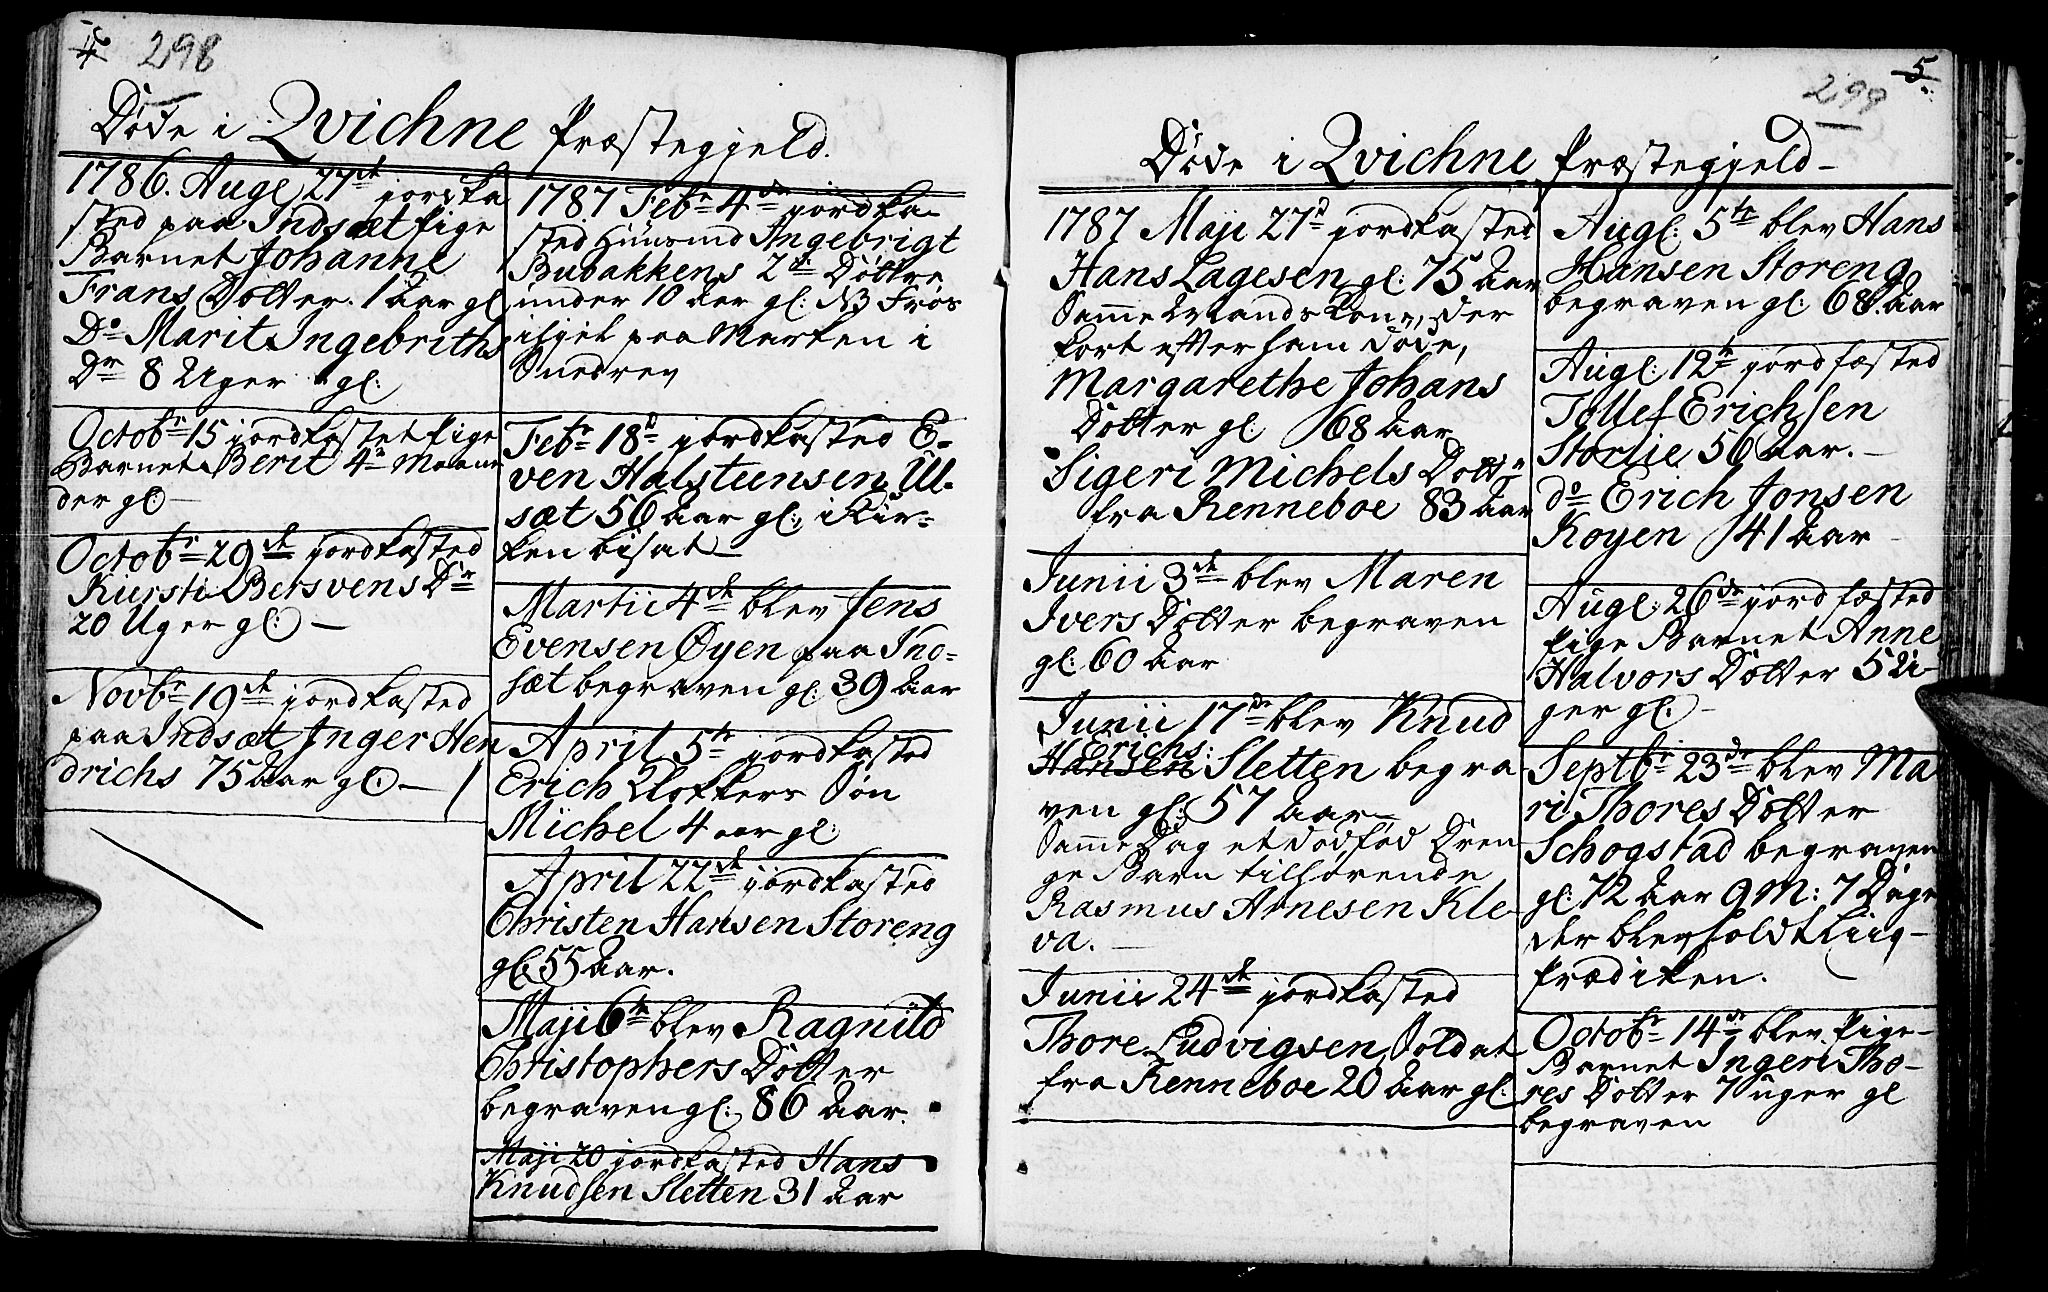 4 298
Døde i Qvichne Præstegjeld.
1786. Augl 27de jordka
sted paa Indsæt Pige
Barnet Johanne
Frans Dotter. 1 Aar gl
Do Marit Ingebriths
Dr 8 Uger gl:
Octobr 15 jordkastet Pige
Barnet Berit 4re Maane
der gl:
Octobr 29de jordkasted
Kiersti Bersvens Dr
20 Uger gl:
Novbr 19de jordkasted
paa Indsæt Inger Hen
drichs 75 Aar gl:
1787 Febr 4de jordka-
sted Huusmd Ingebrigt
Bubakkens 2de Døttre
under 10 Aar gl: NB Frøs
ihjel paa Marken i
Sneedrev
Febr 18d jordkasted E-
ven Halsteensen Ul-
sæt 56 Aar gl: i Kir-
ken bisat
Martii 4de blev Jens
Evensen Øyen paa Ino-
sæt begraven gl: 39 Aar
April 5te jordkasted
Erich Klokkers Søn
Michel 4 aar gl:
April 22de jordkasted
Christen Hansen Storeng
gl: 55 Aar.
Maji 6te blev Ragnild
Christophers Dotter
begraven gl: 86 Aar.
Maji 20 jordkasted Hans
Knudsen Sletten 31 Aar
299 5.
Døde i Qvichne Præstegjeld
1787 Maji 27d jordkasted
Hans Lagesen gl: 75 Aar
Samme Mands Kone, der
kort efter ham døde,
Margarethe Johans
Dotter gl 68 Aar
Sigeri Michels Dottr
fra Renneboe 83 Aar
Junii 3de blev Maren
Ivers Dotter begraven
gl: 60 Aar
Junii 17de blev Knud
Erichs:
Hansen Sletten begra-
ven gl: 57 Aar
Samme Dag et dødfød Dren
ge Barn tilhørende
Rasmus Arnesen Kle-
va.
Junii 24de jordkasted
Thore Ludvigsen Soldat
fra Renneboe 20 Aar gl:
Augl: 5te blev Hans
Hansen Storeng
begraven gl: 68 Aar
Augl: 12te jordfæsted
Tollef Erichsen
Storlie 56 Aar.
do Erich Jonsen
Koyen 41 Aar
Augl: 26de jordfæsted
Pige Barnet Anne
Halvors Dotter 5 U-
ger gl:
Septbr 23de blev Ma
ri Thores Dotter
Schogstad begraven
gl: 72 Aar 9 M: 7 Dage
der blev holdt Liig-
prædiken.
Octobr 14de blev Pige-
Barnet Ingeri Tho-
res Dotter 7 uger gl
begraven